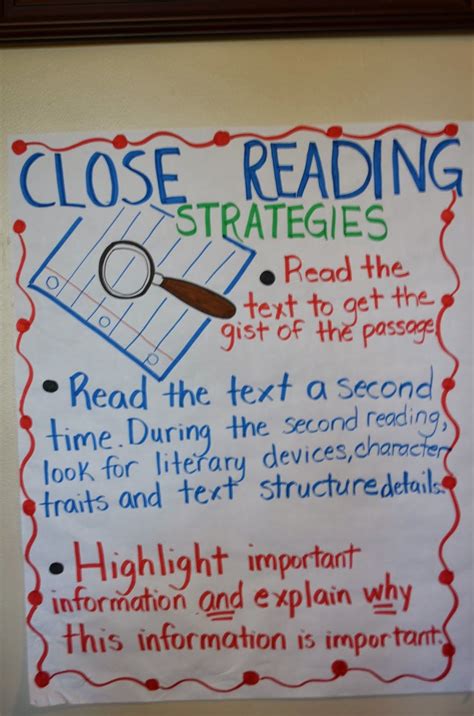 CLOSE READING
STRATEGIES
• Read the
text to get the
gist of the passage.
• Read the text a second
time. During the second reading,
look for literary devices, character
traits and text structure details.
• Highlight important
information and explain why
this information is important.